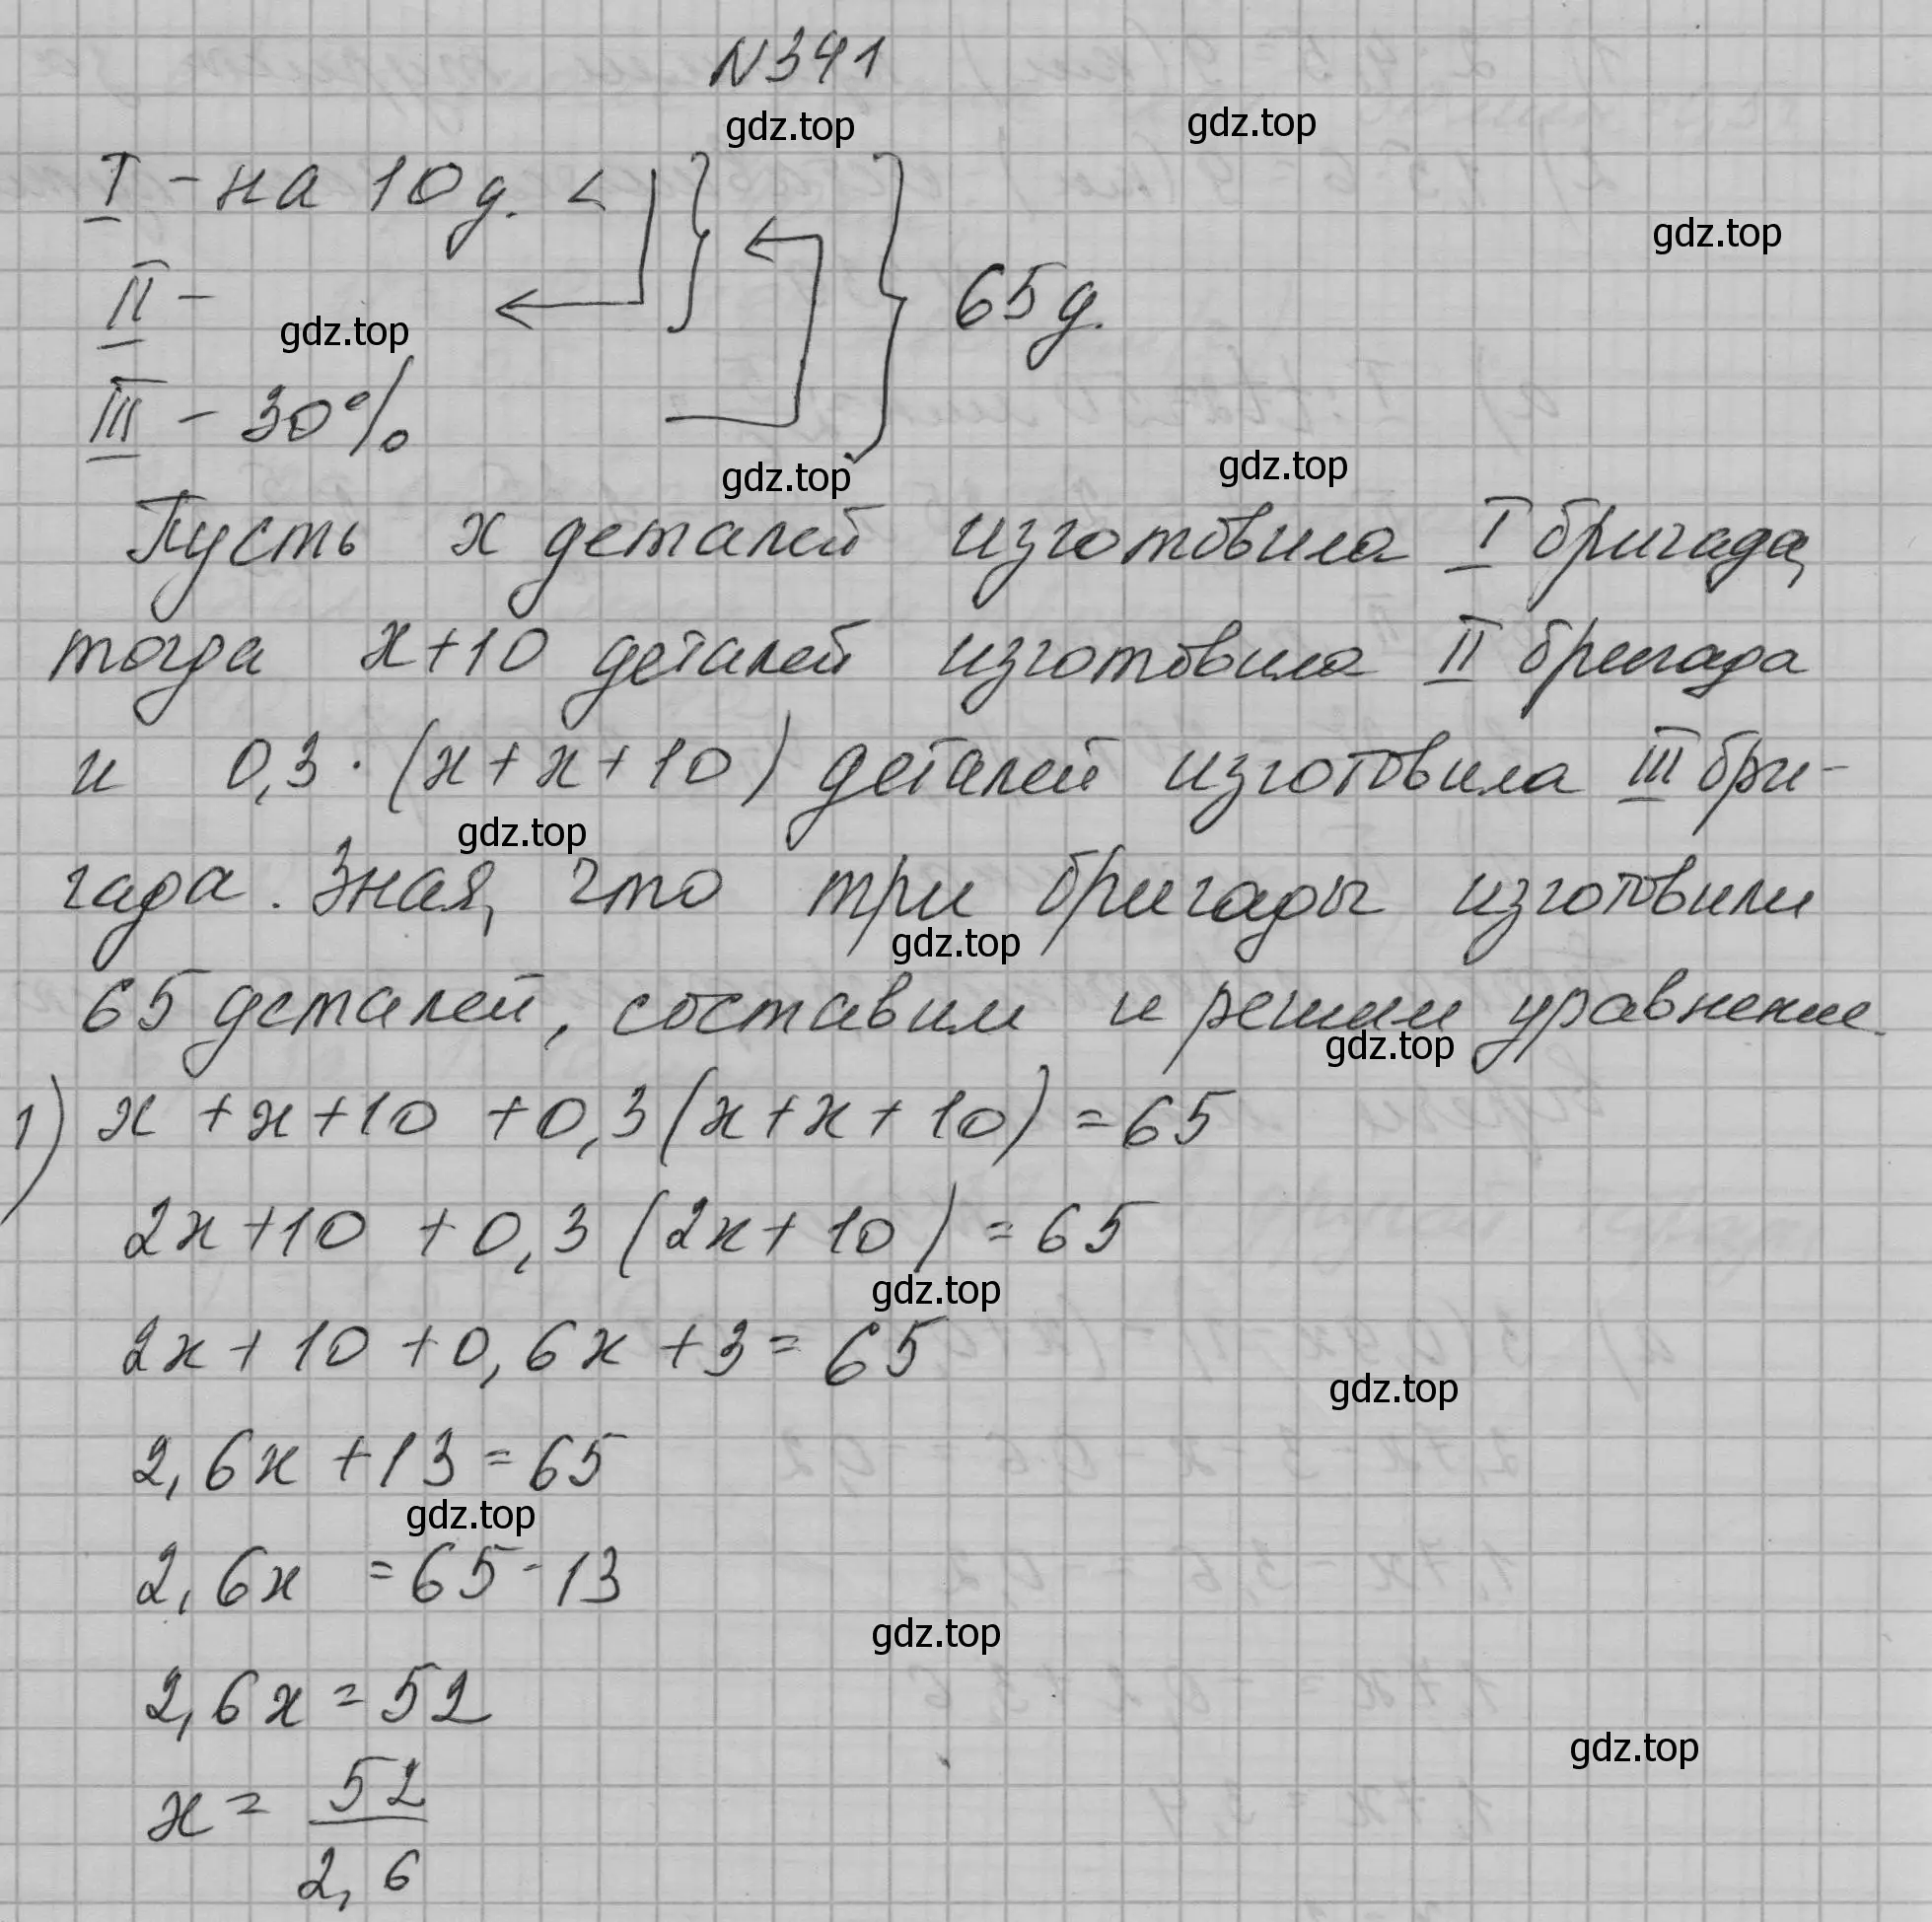 N341
gdz.top
gdz.top
I - на 10 д. <
gdz.top
II -
65 д.
gdz.top
III - 30%
gdz.top
gdz.top
Пусть х деталей изготовила I бригада,
тогда х+10 деталей изготовила II бригада
и 0,3·(х+х+10) деталей изготовила III бри-
gdz.top
гада. Зная, что три бригады изготовили
gdz.top
65 деталей, составим и решим уравнение.
gdz.top
1) х+х+10+0,3(х+х+10)=65
2х+10+0,3(2х+10)=65
gdz.top
2х+10+0,6х+3=65
gdz.top
2,6х+13=65
gdz.top
2,6х=65-13
gdz.top
2,6х=52
gdz.top
х=52/2,6